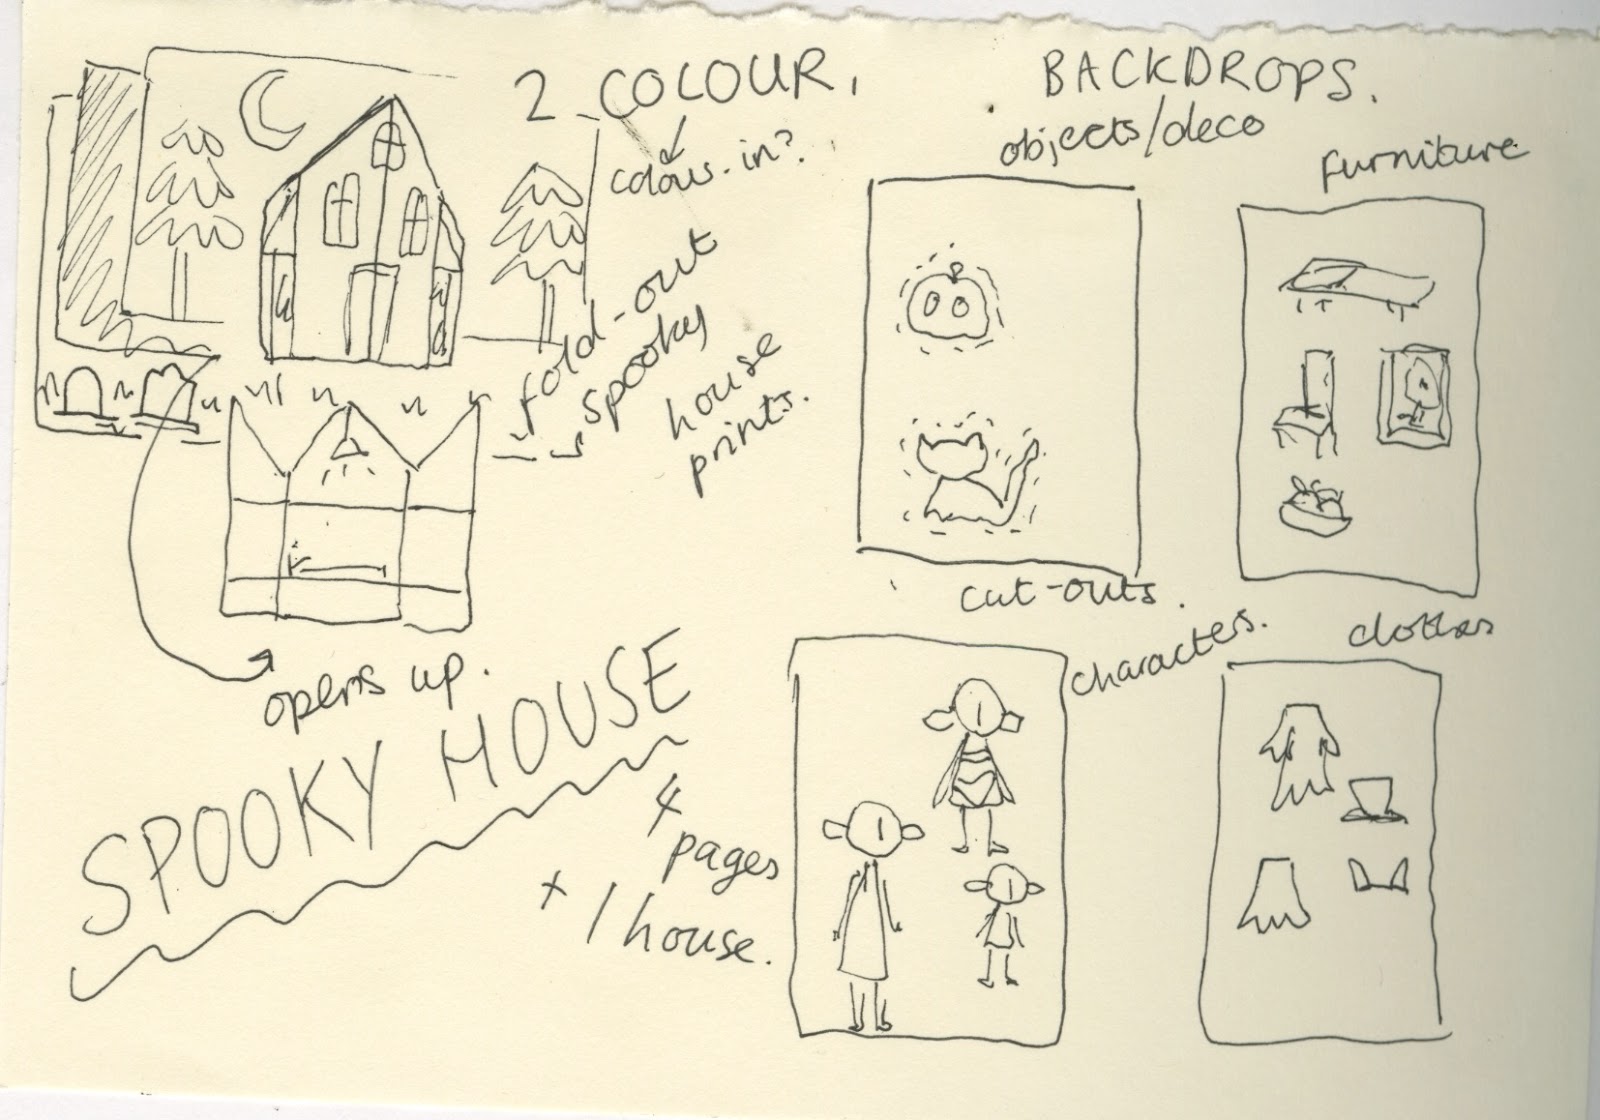 2 COLOUR.
colour-in?
fold-out
spooky
house
prints.
opens up.
SPOOKY HOUSE
4
pages
+ 1 house.
BACKDROPS.
objects/deco
furniture
cut-outs.
characters.
clothes